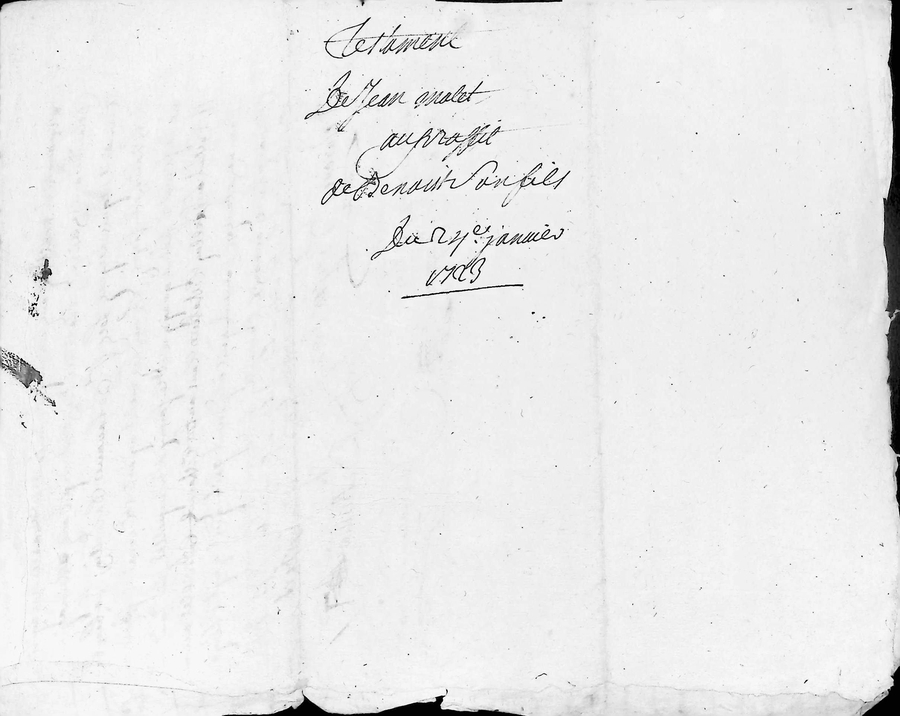 Testament
De Jean malet
au proffit
de Benoist Son fils
Du 24e janvier
1783